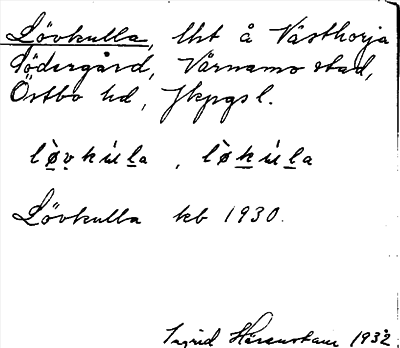 Lövkulla, lht å Västhorja
Södergård, Värnamo stad,
Östbo hd, Jkpgs l.
lø̀vkúla, lø̀kúla
Lövkulla kb 1930.
Ingrid 1932